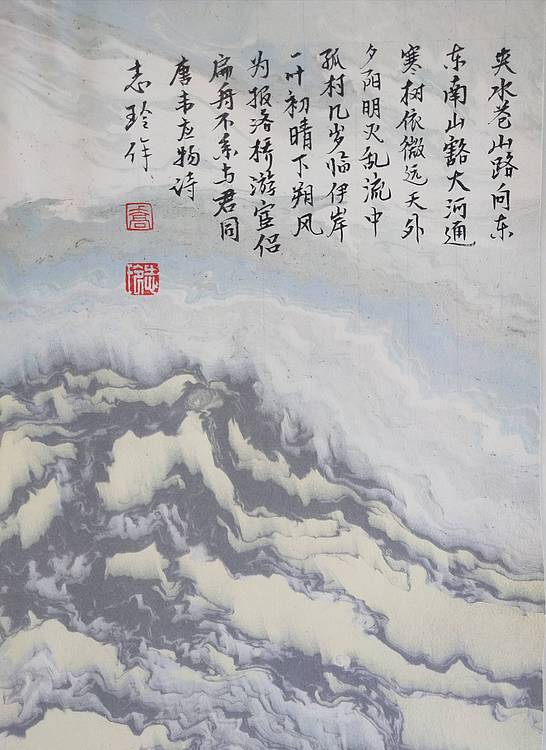 夹水苍山路向东
东南山豁大河通
寒树依微远天外
夕阳明灭乱流中
孤村几岁临伊岸
一叶初晴下朔风
为报落桥游宦侣
扁舟不系与君同
唐韦应物诗
志玲作
喬
志玲